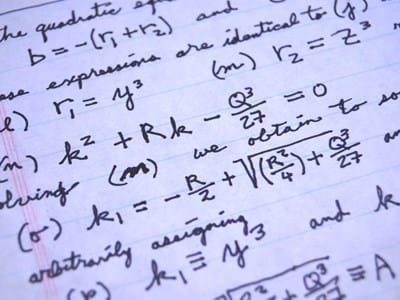 the quadratic equ
b = -(r₁ + r₂) and
ese expressions are identical to (j)
l) r₁ = y³ (m) r₂ = z³
n) k² + Rk - Q³/27 = 0
olving (m) we obtain to so
(o) k₁ = -R/2 + √((R²/4) + Q³/27) an
arbitrarily assigning
(p) k₁ ≡ y³ and k
R² + Q³/27 ≡ A